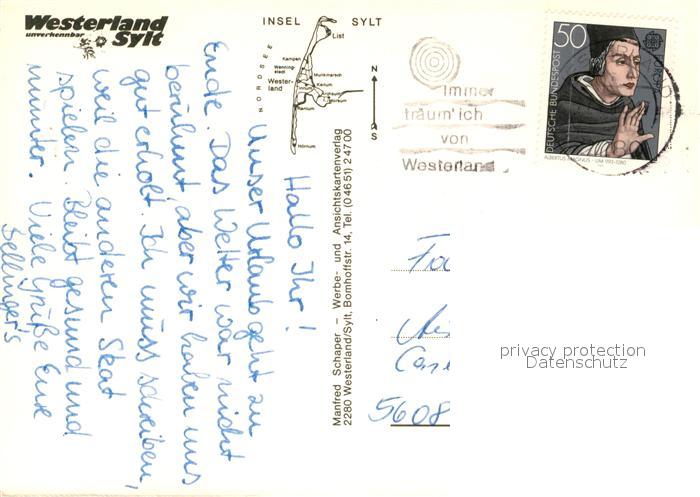 Westerland
unverkennbar
Sylt
INSEL SYLT
NORDSEE
List
Kampen
Wenning-
stedt
Munkmarsch
Wester-
land
Keitum
Rantum
Hörnum
N
S
Immer
träum' ich
von
Westerland
50
DEUTSCHE BUNDESPOST
ALBERTUS MAGNUS · UM 1193-1280
Hallo Ihr!
Unser Urlaub geht zu
Ende. Das Wetter war nicht
berühmt, aber wir haben uns
gut erholt. Ich muss schreiben,
weil die anderen Skat
spielen. Bleibt gesund und
munter. Viele Grüße Eure
Bellinger's
Manfred Schaper – Werbe- und Ansichtskartenverlag
2280 Westerland/Sylt, Bomhoffstr. 14, Tel. (04651) 24700
5608
privacy protection
Datenschutz